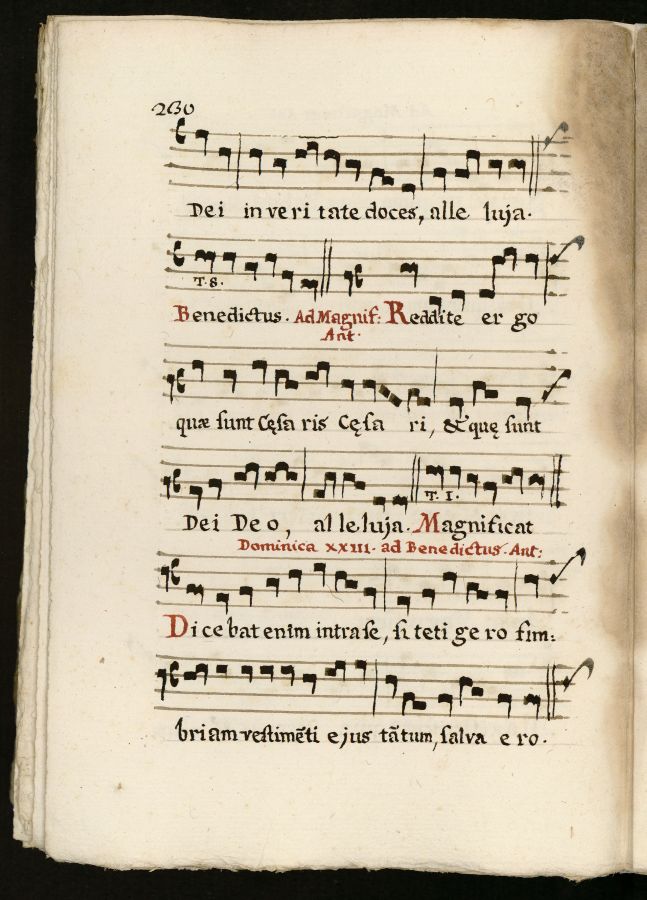 230
Dei in veritate doces, alleluja.
T. 8.
Benedictus. Ad Magnif: Reddite ergo
Ant.
quæ sunt Cęsaris Cęsari, & quę sunt
T. I.
Dei Deo, alleluja. Magnificat
Dominica XXIII. ad Benedictus. Ant:
Dicebat enim intra se, si tetigero fim:
briam vestimēti ejus tātum, salva ero.